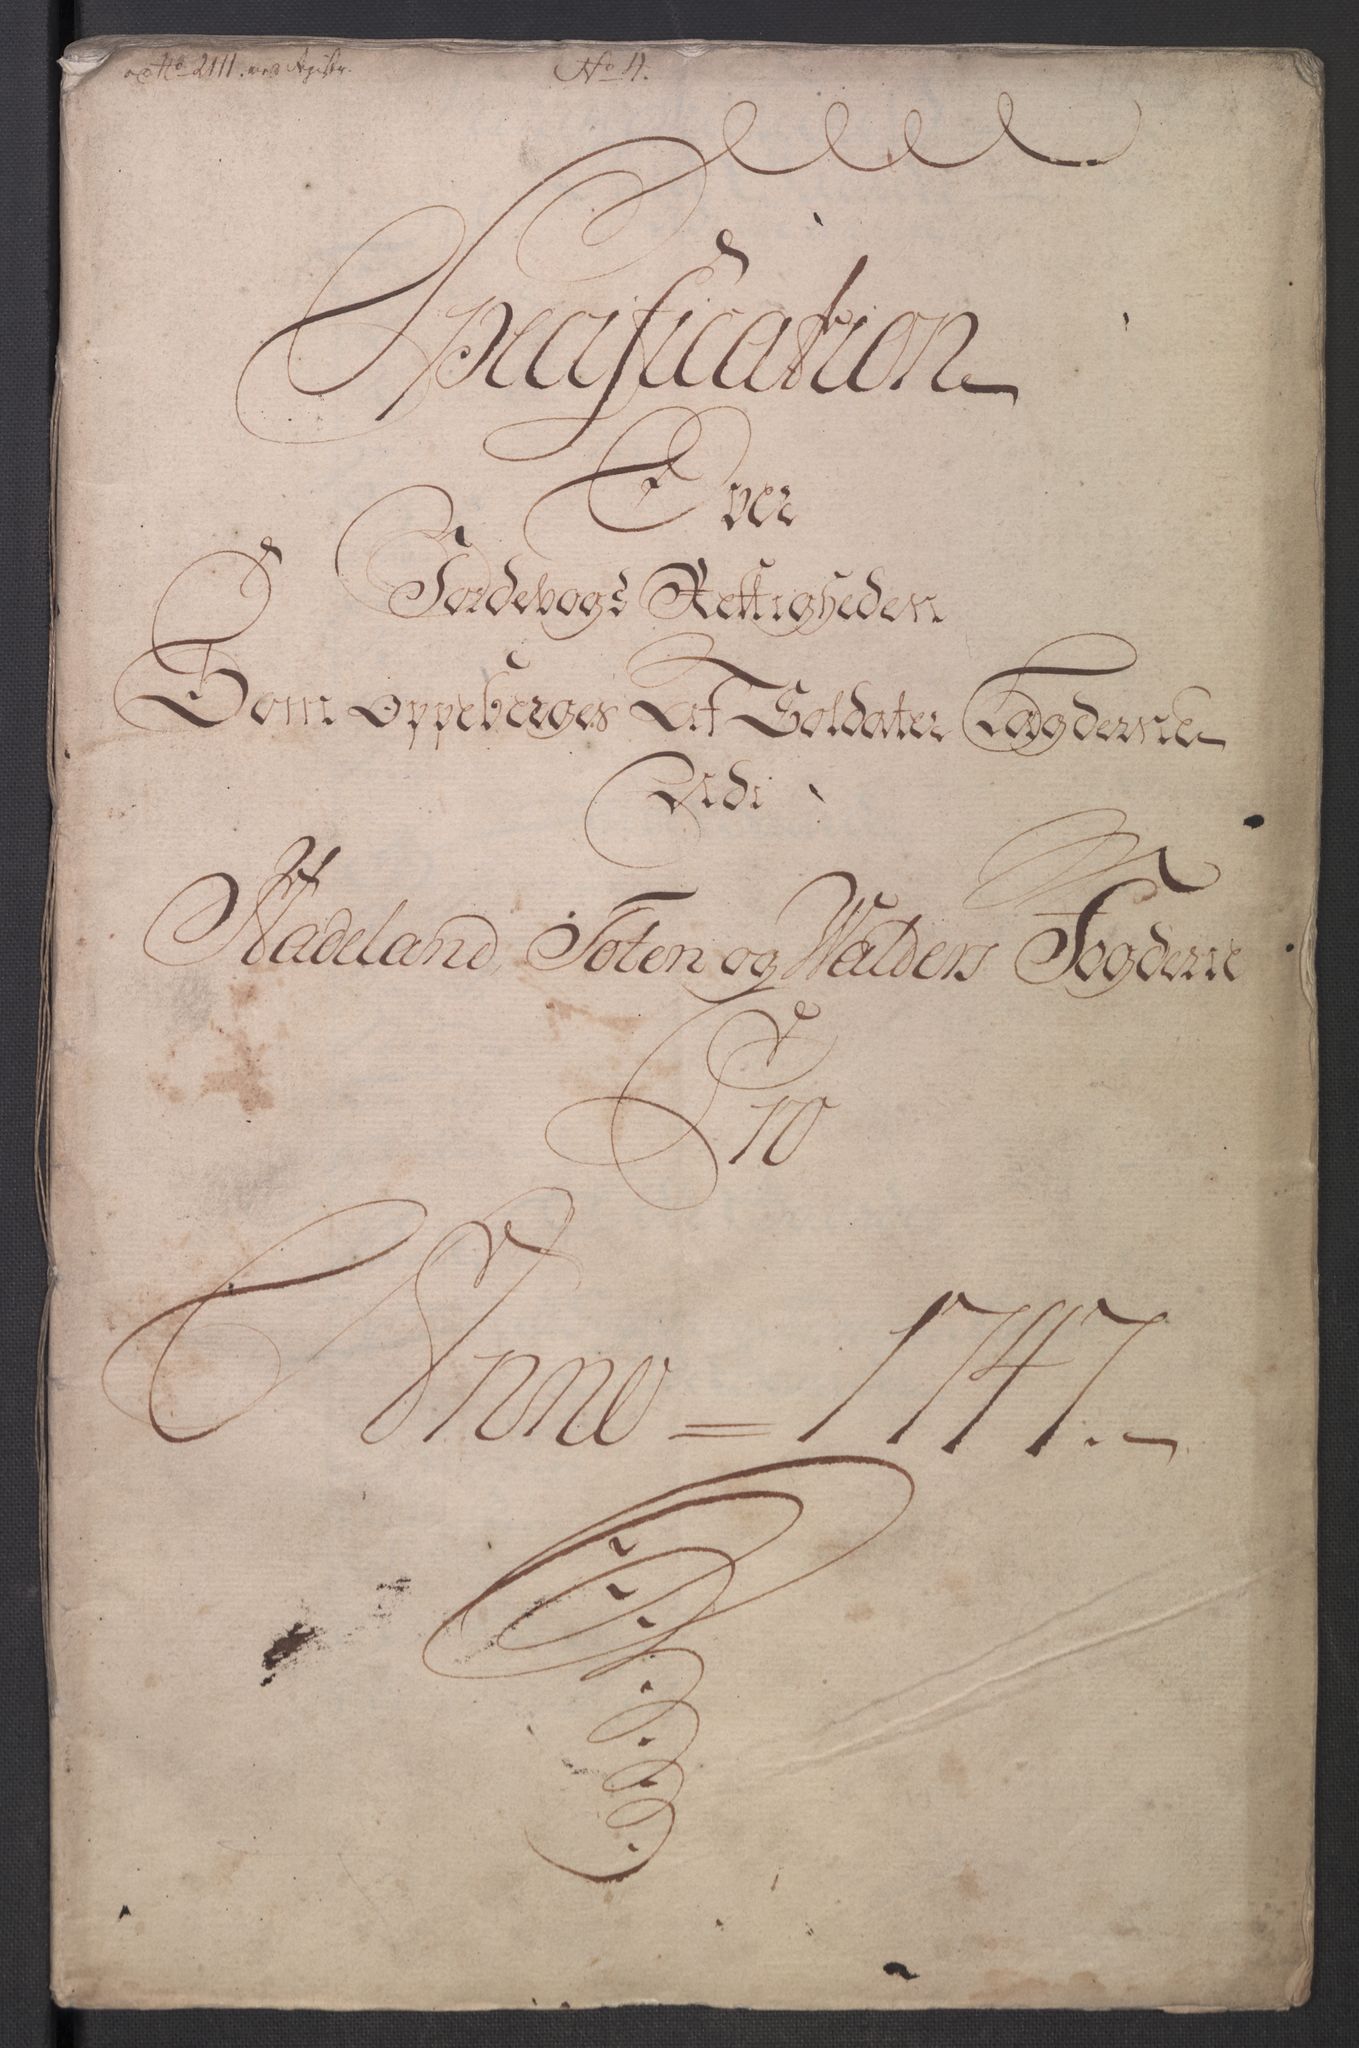 No 4.
Specification
Over
Jordebogs Rettigheden
Som oppeberges Af Soldater Lægderne
Udi
Hadeland, Toten og Walders Fogderie
Pro
Anno = 1747.